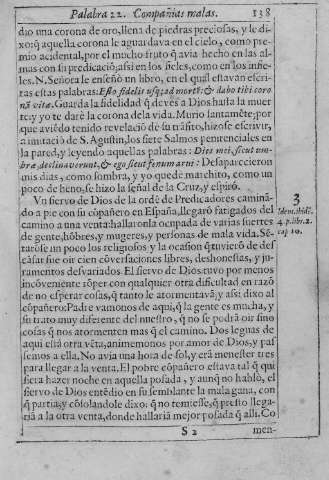 Palabra 22. Compañias malas. 138
dio una corona de oro, llena de piedras preciosas, y le di-
xo: q̃ aquella corona le aguardava en el cielo, como pre-
mio acidental, por el mucho fruto q̃ avia hecho en las al-
mas con su predicació; assi en los fieles, como en los infie-
les. N. Señora le enseñó un libro, en el qual estavan escri-
tas estas palabras: Esto fidelis usq; ad mortẽ: & dabo tibi coro-
nã vitæ. Guarda la fidelidad q̃ deves a Dios hasta la muer
te: y yo te daré la corona de la vida. Murio santamẽte; por
que aviẽdo tenido revelació de su trásito, hizose escrivir,
a imitació de S. Agustin, los siete Salmos penitenciales en
la pared, y leyendo aquellas palabras: Dies mei, sicut um-
bra, declinaverunt, & ego sicut fenum arui: Desaparecieron
mis dias, como sombra, y yo quedè marchito, como un
poco de heno, se hizo la señal de la Cruz, y espiró.
Vn siervo de Dios de la ordẽ de Predicadores caminã-
do a pie con su cõpañero en España, llegarõ fatigados del
camino a una venta: hallarõla ocupada de varias suertes
de gente, hõbres, y mugeres, y personas de mala vida. Sẽ-
tarõse un poco los religiosos y la ocasion q̃ tuvierõ de des
cãsar fue oir cien cõversaciones libres, deshonestas, y ju-
ramentos desvariados. El siervo de Dios tuvo por menos
incõveniente rõper con qualquier otra dificultad en razõ
de no esperar cosas, q̃ tanto le atormentavã; y assi dixo al
cõpañero: Padre vamonos de aqui, q̃ la gente es mucha, y
su trato muy diferente del nuestro, q̃ no se podrà oir sino
cosas q̃ nos atormenten mas q̃ el camino. Dos leguas de
aqui està otra vẽta, animemonos por amor de Dios, y pas
semos a ella. No avia una hora de sol, y erã menester tres
para llegar a la venta. El pobre cõpañero estava tal q̃ qui
siera hazer noche en aquella posada, y aunq̃ no hablò, el
siervo de Dios entẽdio en su semblante la mala gana, con
q̃ partia; y cõsolandole dixo: q̃ no temiesse, q̃ presto llega-
rià a la otra venta, donde hallarià mejor posada q̃ alli. Co
S 2 men-
3
Idem. ibid.
4. p. lib. 2.
cap 10.